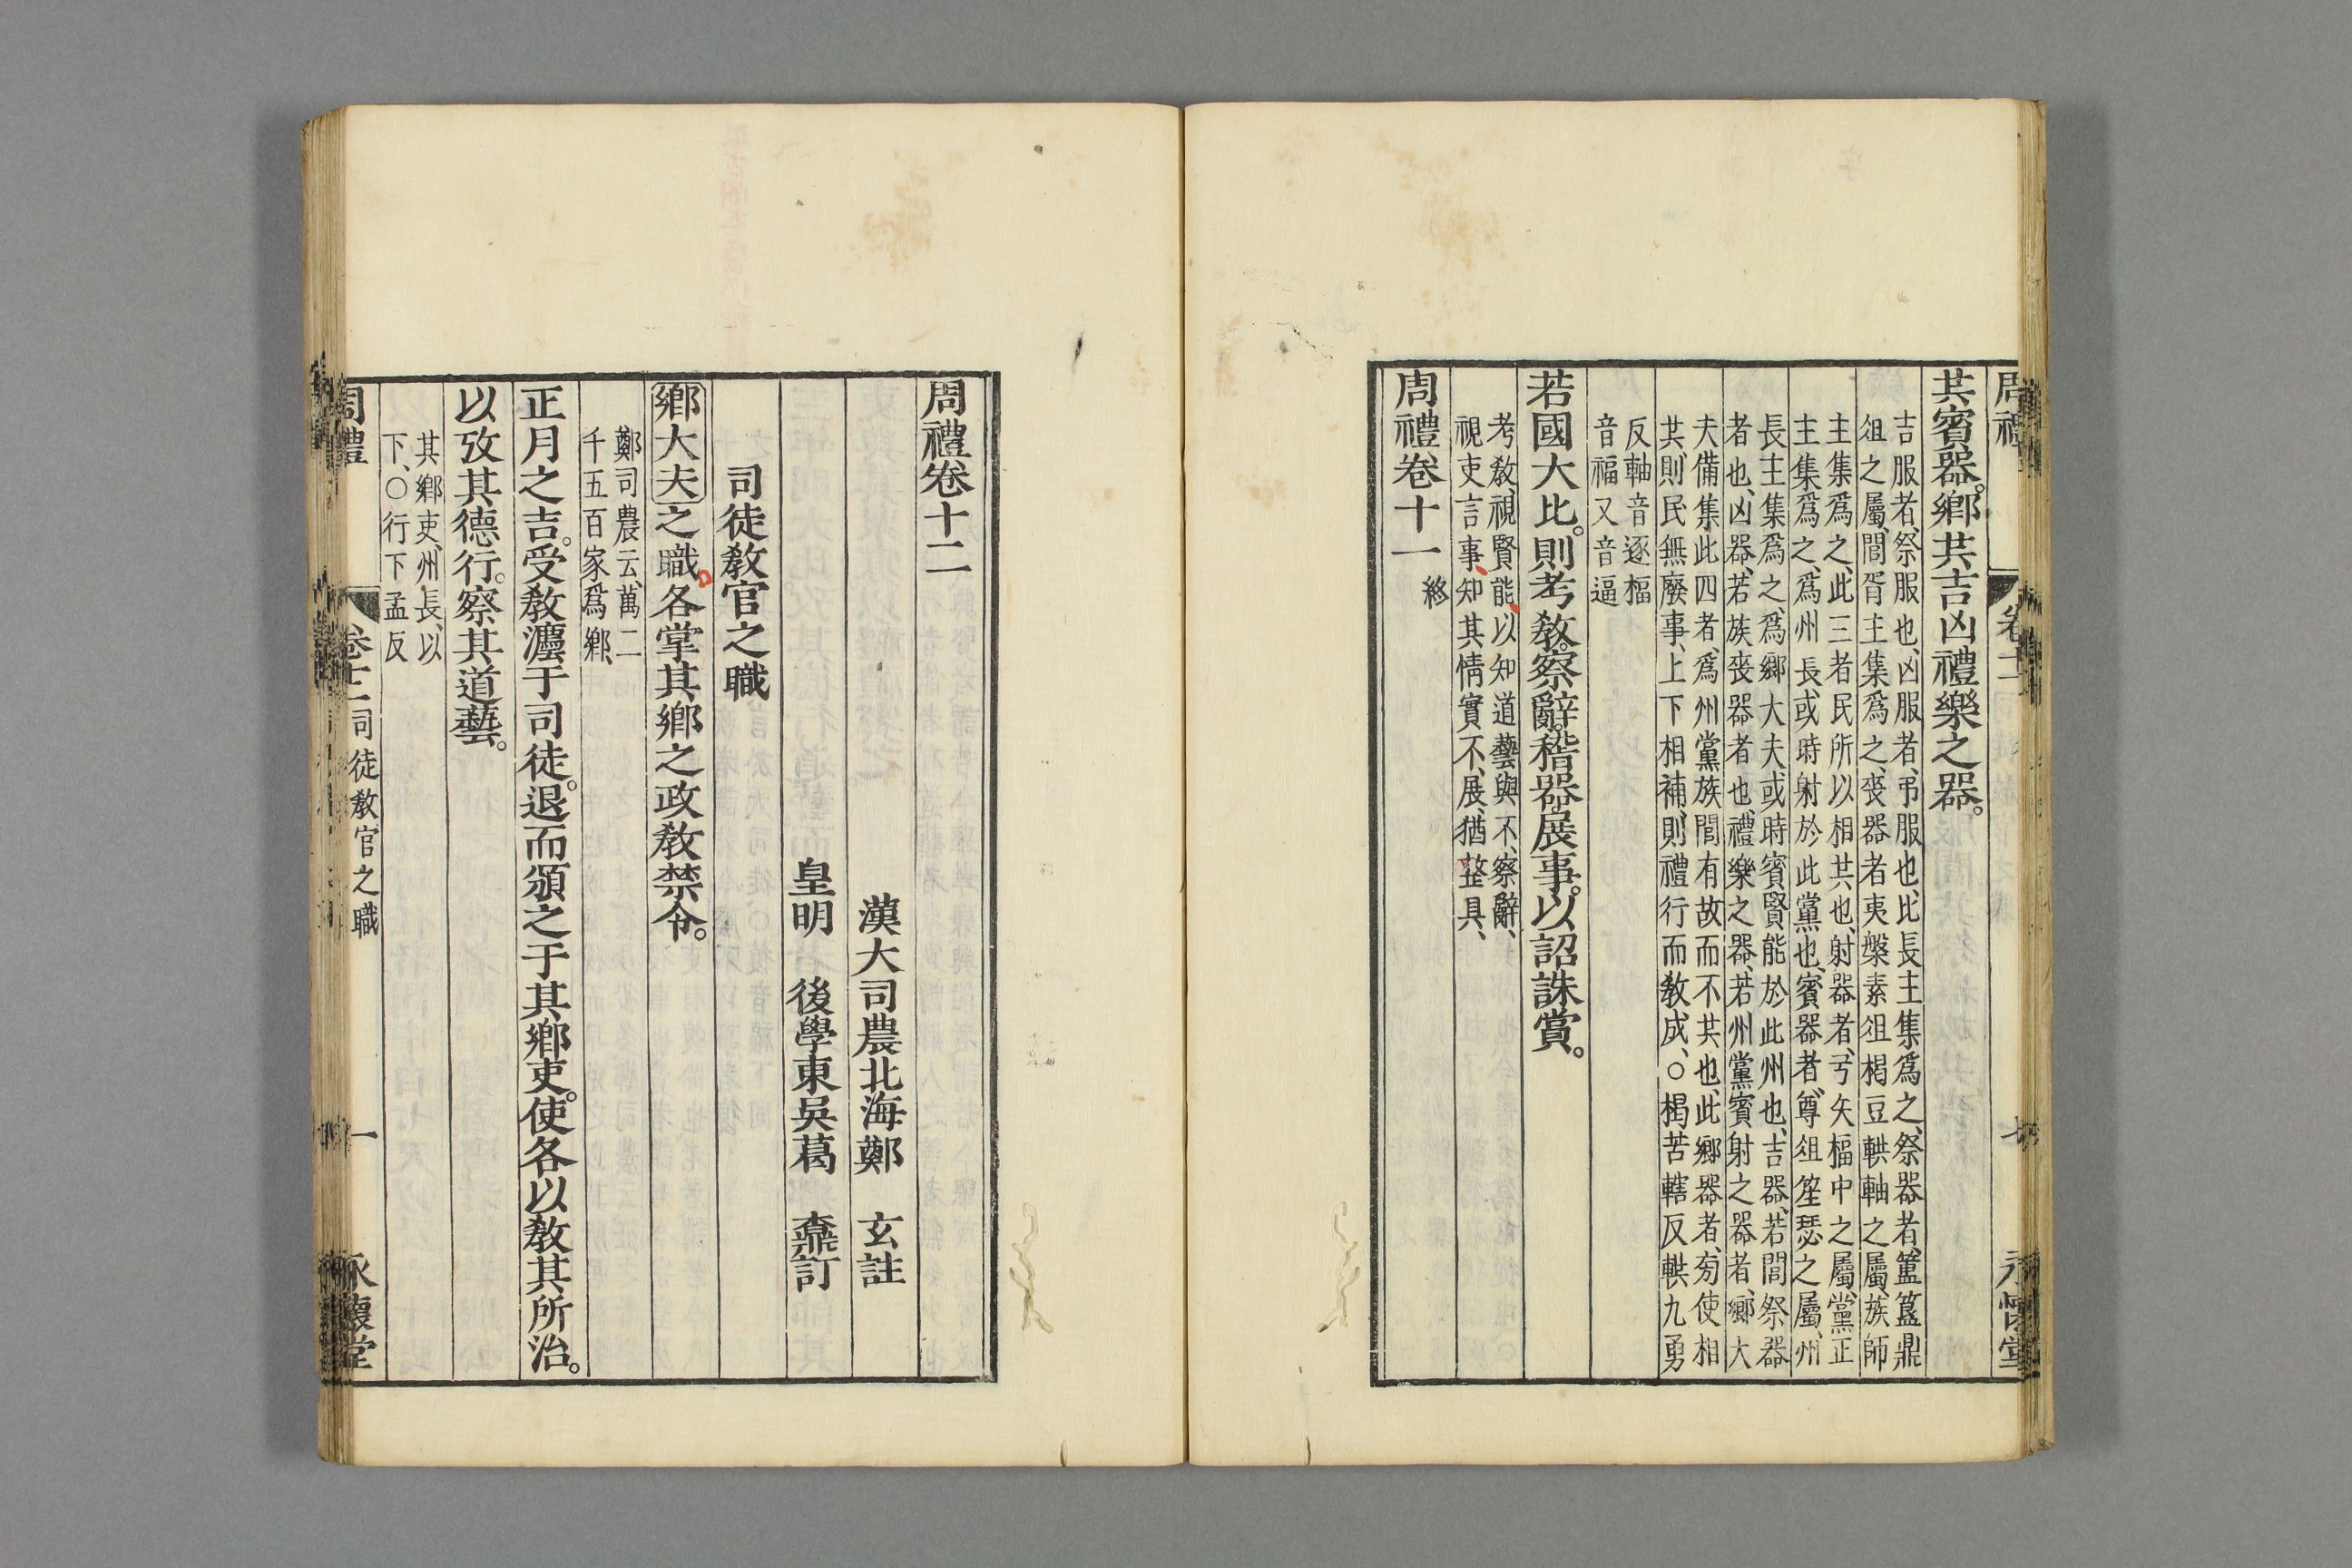 周禮 卷十一 七 永懷堂
共賓器。鄉共吉凶禮樂之器。
吉服者、祭服也、凶服者、弔服也、比長主集爲之、祭器者、簠簋鼎
俎之屬、閭胥主集爲之、喪器者夷槃素俎楬豆輁軸之屬、族師
主集爲之、此三者民所以相共也、射器者、弓矢楅中之屬、黨正
主集爲之、爲州長或時射於此黨也、賓器者、尊俎笙瑟之屬、州
長主集爲之、爲鄉大夫、或時賓賢能於此州也、吉器、若閭祭器
者也、凶器、若族喪器者也、禮樂之器、若州黨賓射之器者、鄉大
夫備集此四者、爲州黨族閭有故而不共也、此鄉器者、旁使相
共、則民無廢事、上下相補、則禮行而敎成、○楬苦轄反輁九勇
反軸音逐楅
音福又音逼
若國大比。則考敎。察辭。稽器。展事。以詔誅賞。
考敎、視賢能、以知道藝與不、察辭、
視吏言事、知其情實不、展、猶整具、
周禮卷十一 終
周禮卷十二
漢大司農北海鄭 玄註
皇明 後學東吳葛 鼒訂
司徒敎官之職
鄉大夫之職。各掌其鄉之政敎禁令。
鄭司農云、萬二
千五百家爲鄉、
正月之吉。受敎灋于司徒。退而頒之于其鄉吏。使各以敎其所治。
以攷其德行。察其道藝。
其鄉吏、州長、以
下、○行下孟反
周禮 卷十二 司徒敎官之職 一 永懷堂